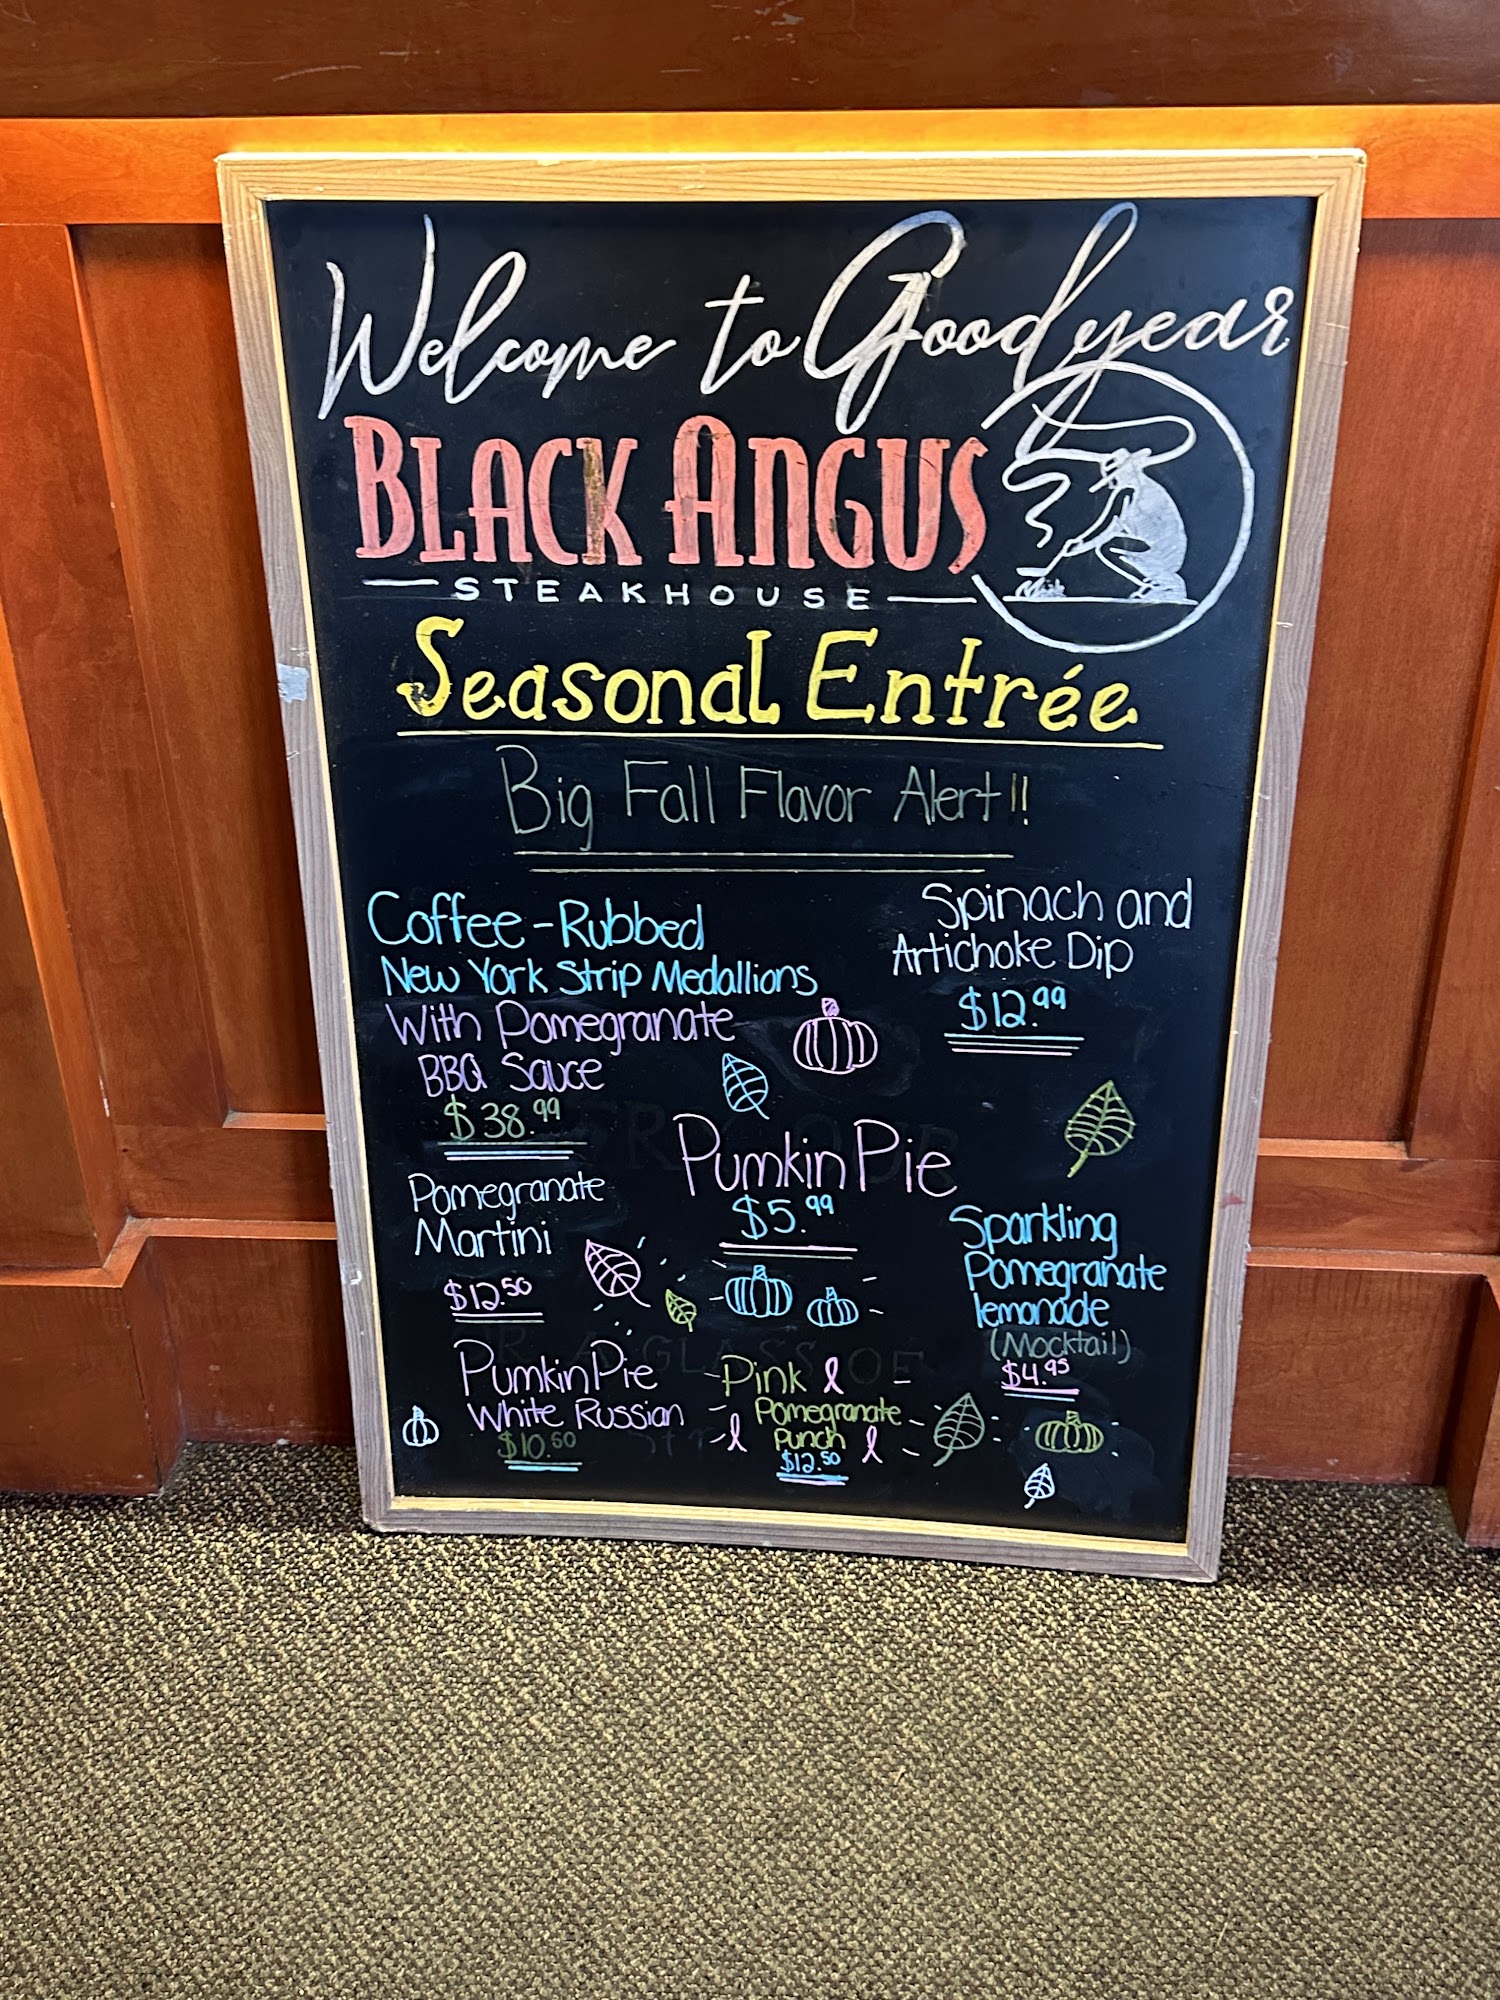 Welcome to Goodyear
BLACK ANGUS
STEAKHOUSE
Seasonal Entrée
Big Fall Flavor Alert!!
Coffee-Rubbed
New York Strip Medallions
With Pomegranate
BBQ Sauce
$38.99
Spinach and
Artichoke Dip
$12.99
Pumkin Pie
$5.99
Pomegranate
Martini
$12.50
Sparkling
Pomegranate
lemonade
(Mocktail)
$4.95
Pumkin Pie
White Russian
$10.50
Pink
Pomegranate
Punch
$12.50